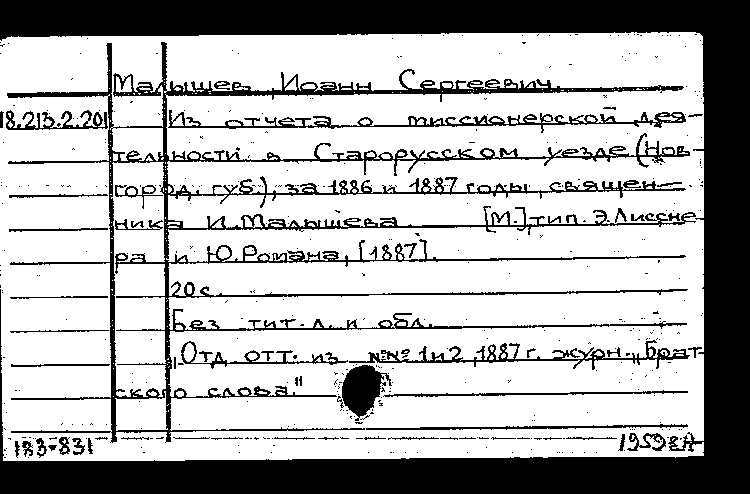 Малышев, Иоанн Сергеевич.
18.213.2.201 Из отчета о миссионерской дея-
тельности в Старорусском уезде (Нов-
город. губ.), за 1886 и 1887 годы, священ-
ника И. Малышева. [М.], тип. Э. Лиссне-
ра и Ю. Романа, [1887].
20 с.
Без тит. л. и обл.
„Отд. отт. из №№ 1 и 2, 1887 г. журн. „Брат-
ского слова."
183-831